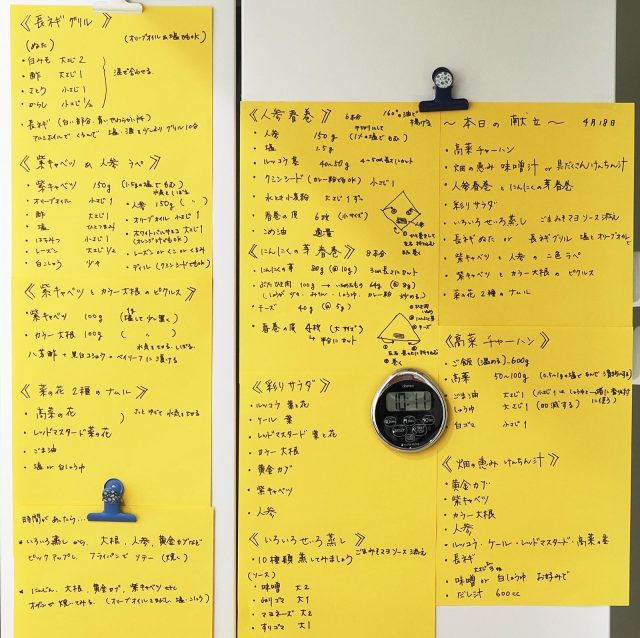 《長ネギ グリル》
(オリーブオイル&塩でもOK)
(ぬた)
・白みそ 大さじ2
・酢 大さじ1
・さとう 小さじ1
・からし 小さじ1/2
混ぜ合わせる。
・長ネギ(白い部分、青いやわらかい所も)
アルミホイルでくるんで 塩、油と少しより グリル10分
《紫キャベツ & 人参 ラペ》
・紫キャベツ 150g (1.5gの塩でもむ)
・人参 150g ( 〃 )
・オリーブオイル 小さじ1
・酢 大さじ1
・塩 ひとつまみ
・はちみつ 小さじ1
・レーズン 大さじ1/2
・白こしょう 少々
・オリーブオイル 小さじ1
・ホワイトバルサミコ 大さじ1
(オレンジ汁でもOK)
・レーズン or くこの実
・ディル(クミンシードでもOK)
《紫キャベツと カラー大根の ピクルス》
・紫キャベツ 100g (塩して少し置く)
・カラー大根 100g ( 〃 )
水気をきる。しぼる。
八芳酢 + 黒白コショウ + ベイリーフ に漬ける
《菜の花 2種の ナムル》
・高菜の花
・レッドマスタード菜の花
さっとゆでて 水気をきる
・ごま油
・塩 or 白しょうゆ
時間があったら...
・いろいろ蒸しから、大根、人参、黄金カブなど
ピックアップし、フライパンで ソテー(焼く)
・にんじん、大根、黄金カブ、紫キャベツ etc
オーブンで焼いてみる。(オリーブオイルをまぶし、塩・こしょう)
《人参春巻》 6本分
160°の油で揚げる
・人参 150g (1%の塩でもむ)
・塩 1.5g
・ルッコラ 葉 40~50g 4~5cm長さにカット
・クミンシード(カレー粉でもOK) 小さじ1
・水とき小麦粉 大さじ1
・春巻の皮 6枚 (小サイズ)
・こめ油 適量
《にんにくの芽 春巻》 8本分
・にんにくの芽 80g (@10g) 3cm長さにカット
・ぶたひき肉 100g → いためたもの 64g (@8g)
(しょうが、みりん、しょうゆ、カレー粉 炒める)
・チーズ 40g (@5g)
・春巻の皮 4枚 (大サイズ)
半分にカット
《彩りサラダ》
・ルッコラ 葉と花
・ケール 葉
・レッドマスタード 葉と花
・カラー大根
・黄金カブ
・紫キャベツ
・人参
《いろいろせいろ蒸し》
・10種類 蒸してみましょう ごまみそマヨソース 添え
(ソース)
・味噌 大2
・ねりゴマ 大1
・マヨネーズ 大2
・すりゴマ 大1
~ 本日の 献立 ~ 4月18日
・高菜チャーハン
・畑の恵み 味噌汁 or 具だくさんけんちん汁
・人参春巻 と にんにくの芽春巻
・彩りサラダ
・いろいろせいろ蒸し ごまみそマヨソース 添え
・長ネギぬた or 長ネギグリル 塩とオリーブオイルで
・紫キャベツ と 人参 の 二色ラペ
・紫キャベツ と カラー大根 の ピクルス
・菜の花 2種の ナムル
《高菜 チャーハン》
・ご飯(温める) 600g
・高菜 50~100g
・ごま油 大さじ1
・しょうゆ 大さじ1
・白ゴマ 小さじ1
《畑の恵み けんちん汁》
・黄金カブ
・紫キャベツ
・カラー大根
・人参
・ルッコラ・ケール・レッドマスタード・高菜の葉
・長ネギ
・味噌 or 白しょうゆ お好みで
・だし汁 600cc